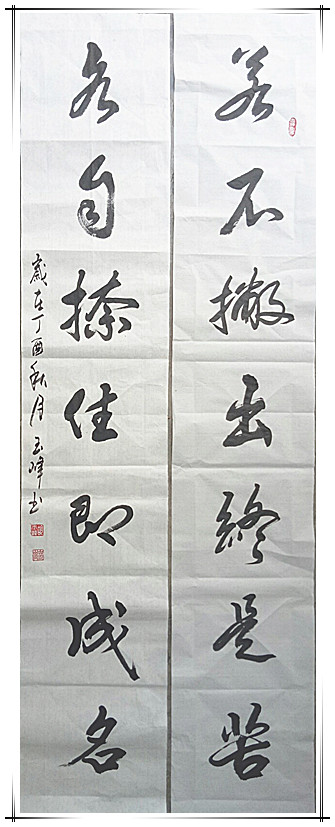 若不撇出終是苦
各自捺住即成名
歲在丁酉秋月玉峰书